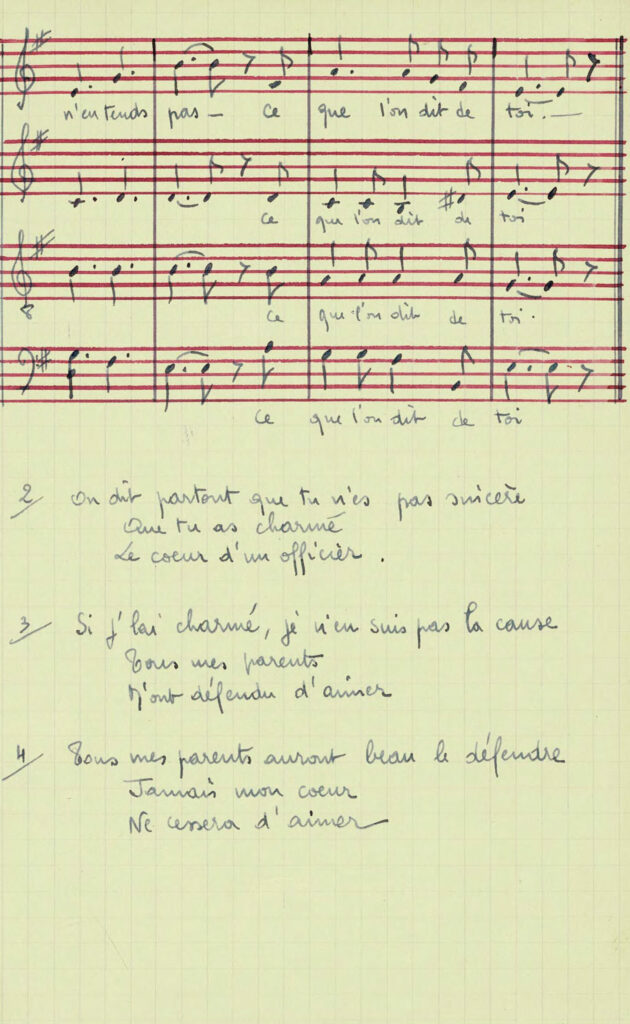 n'entends pas_ ce que l'on dit de toi._
ce que l'on dit de toi
8
ce que l'on dit de toi.
ce que l'on dit de toi
2/ On dit partout que tu n'es pas sincère
Que tu as charmé
Le coeur d'un officier.
3/ Si j'lai charmé, je n'en suis pas la cause
Tous mes parents
M'ont défendu d'aimer
4/ Tous mes parents auront beau le défendre
Jamais mon coeur
Ne cessera d'aimer